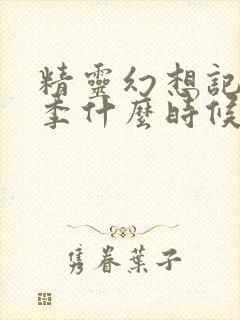 精靈幻想記
季什麼時候
隽眷葉子